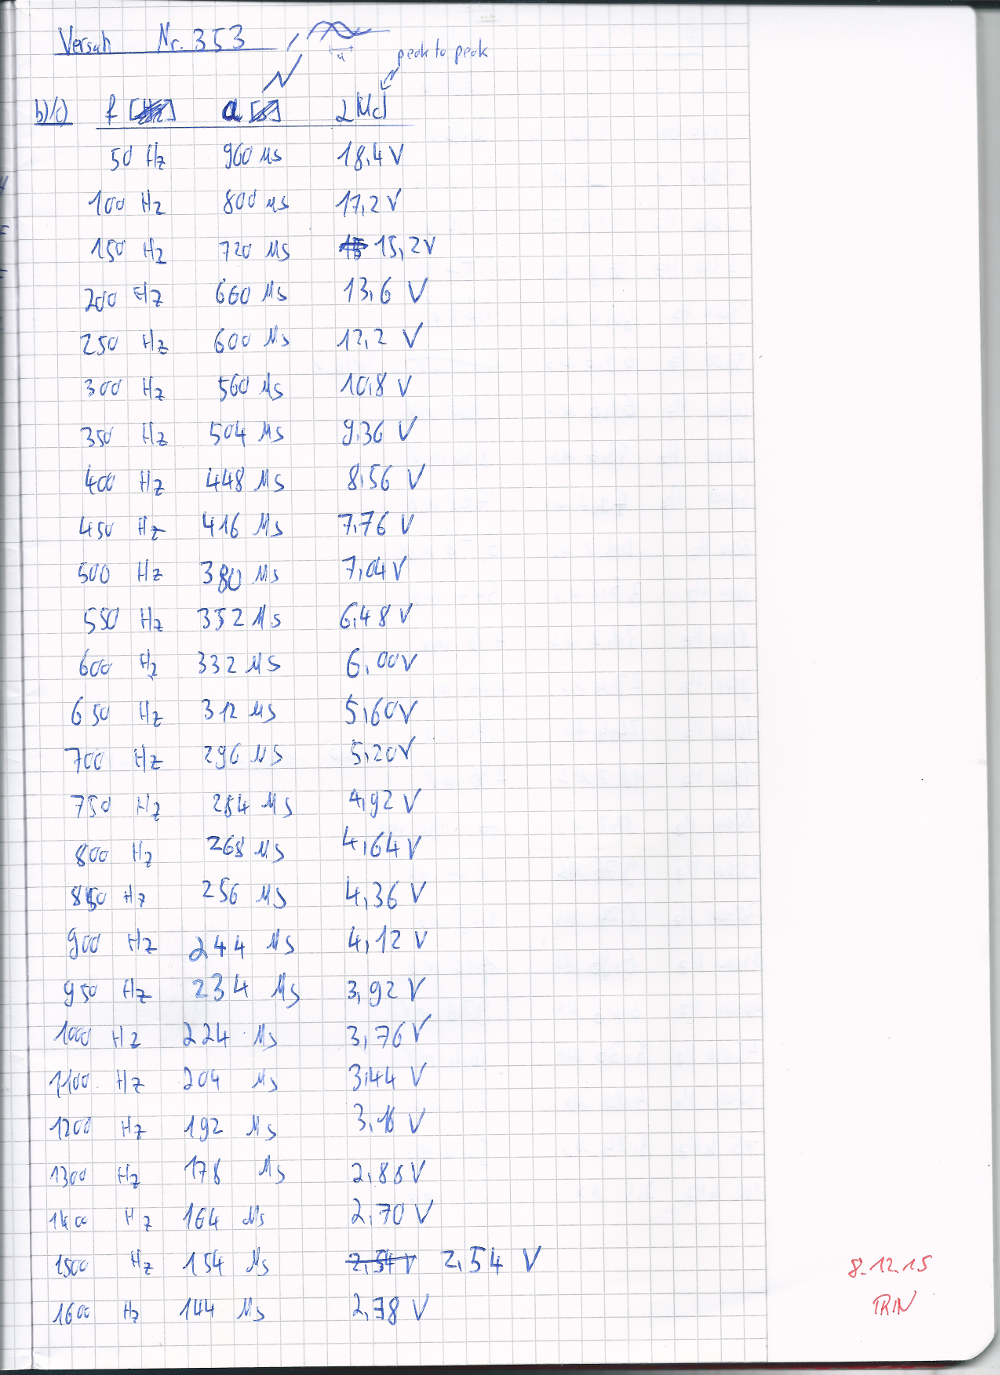 Versuch Nr. 353
a
peak to peak
b)/c) f a 2|Uc|
50 Hz 960 µs 18,4 V
100 Hz 800 µs 17,2 V
150 Hz 720 µs 15,2 V
200 Hz 660 µs 13,6 V
250 Hz 600 µs 12,2 V
300 Hz 560 µs 10,8 V
350 Hz 504 µs 9,36 V
400 Hz 448 µs 8,56 V
450 Hz 416 µs 7,76 V
500 Hz 380 µs 7,04 V
550 Hz 352 µs 6,48 V
600 Hz 332 µs 6,00 V
650 Hz 312 µs 5,60 V
700 Hz 296 µs 5,20 V
750 Hz 284 µs 4,92 V
800 Hz 268 µs 4,64 V
850 Hz 256 µs 4,36 V
900 Hz 244 µs 4,12 V
950 Hz 234 µs 3,92 V
1000 Hz 224 µs 3,76 V
1100 Hz 204 µs 3,44 V
1200 Hz 192 µs 3,16 V
1300 Hz 178 µs 2,88 V
1400 Hz 164 µs 2,70 V
1500 Hz 154 µs 2,54 V 2,54 V
1600 Hz 144 µs 2,38 V
8.12.15